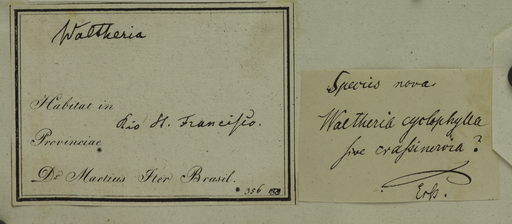 Waltheria
Habitat in
Rio St. Franciſco.
Provinciae
Dr Martius Iter Brasil.
356
Species nova.
Waltheria cyclophylla
ſive craſsinervia?